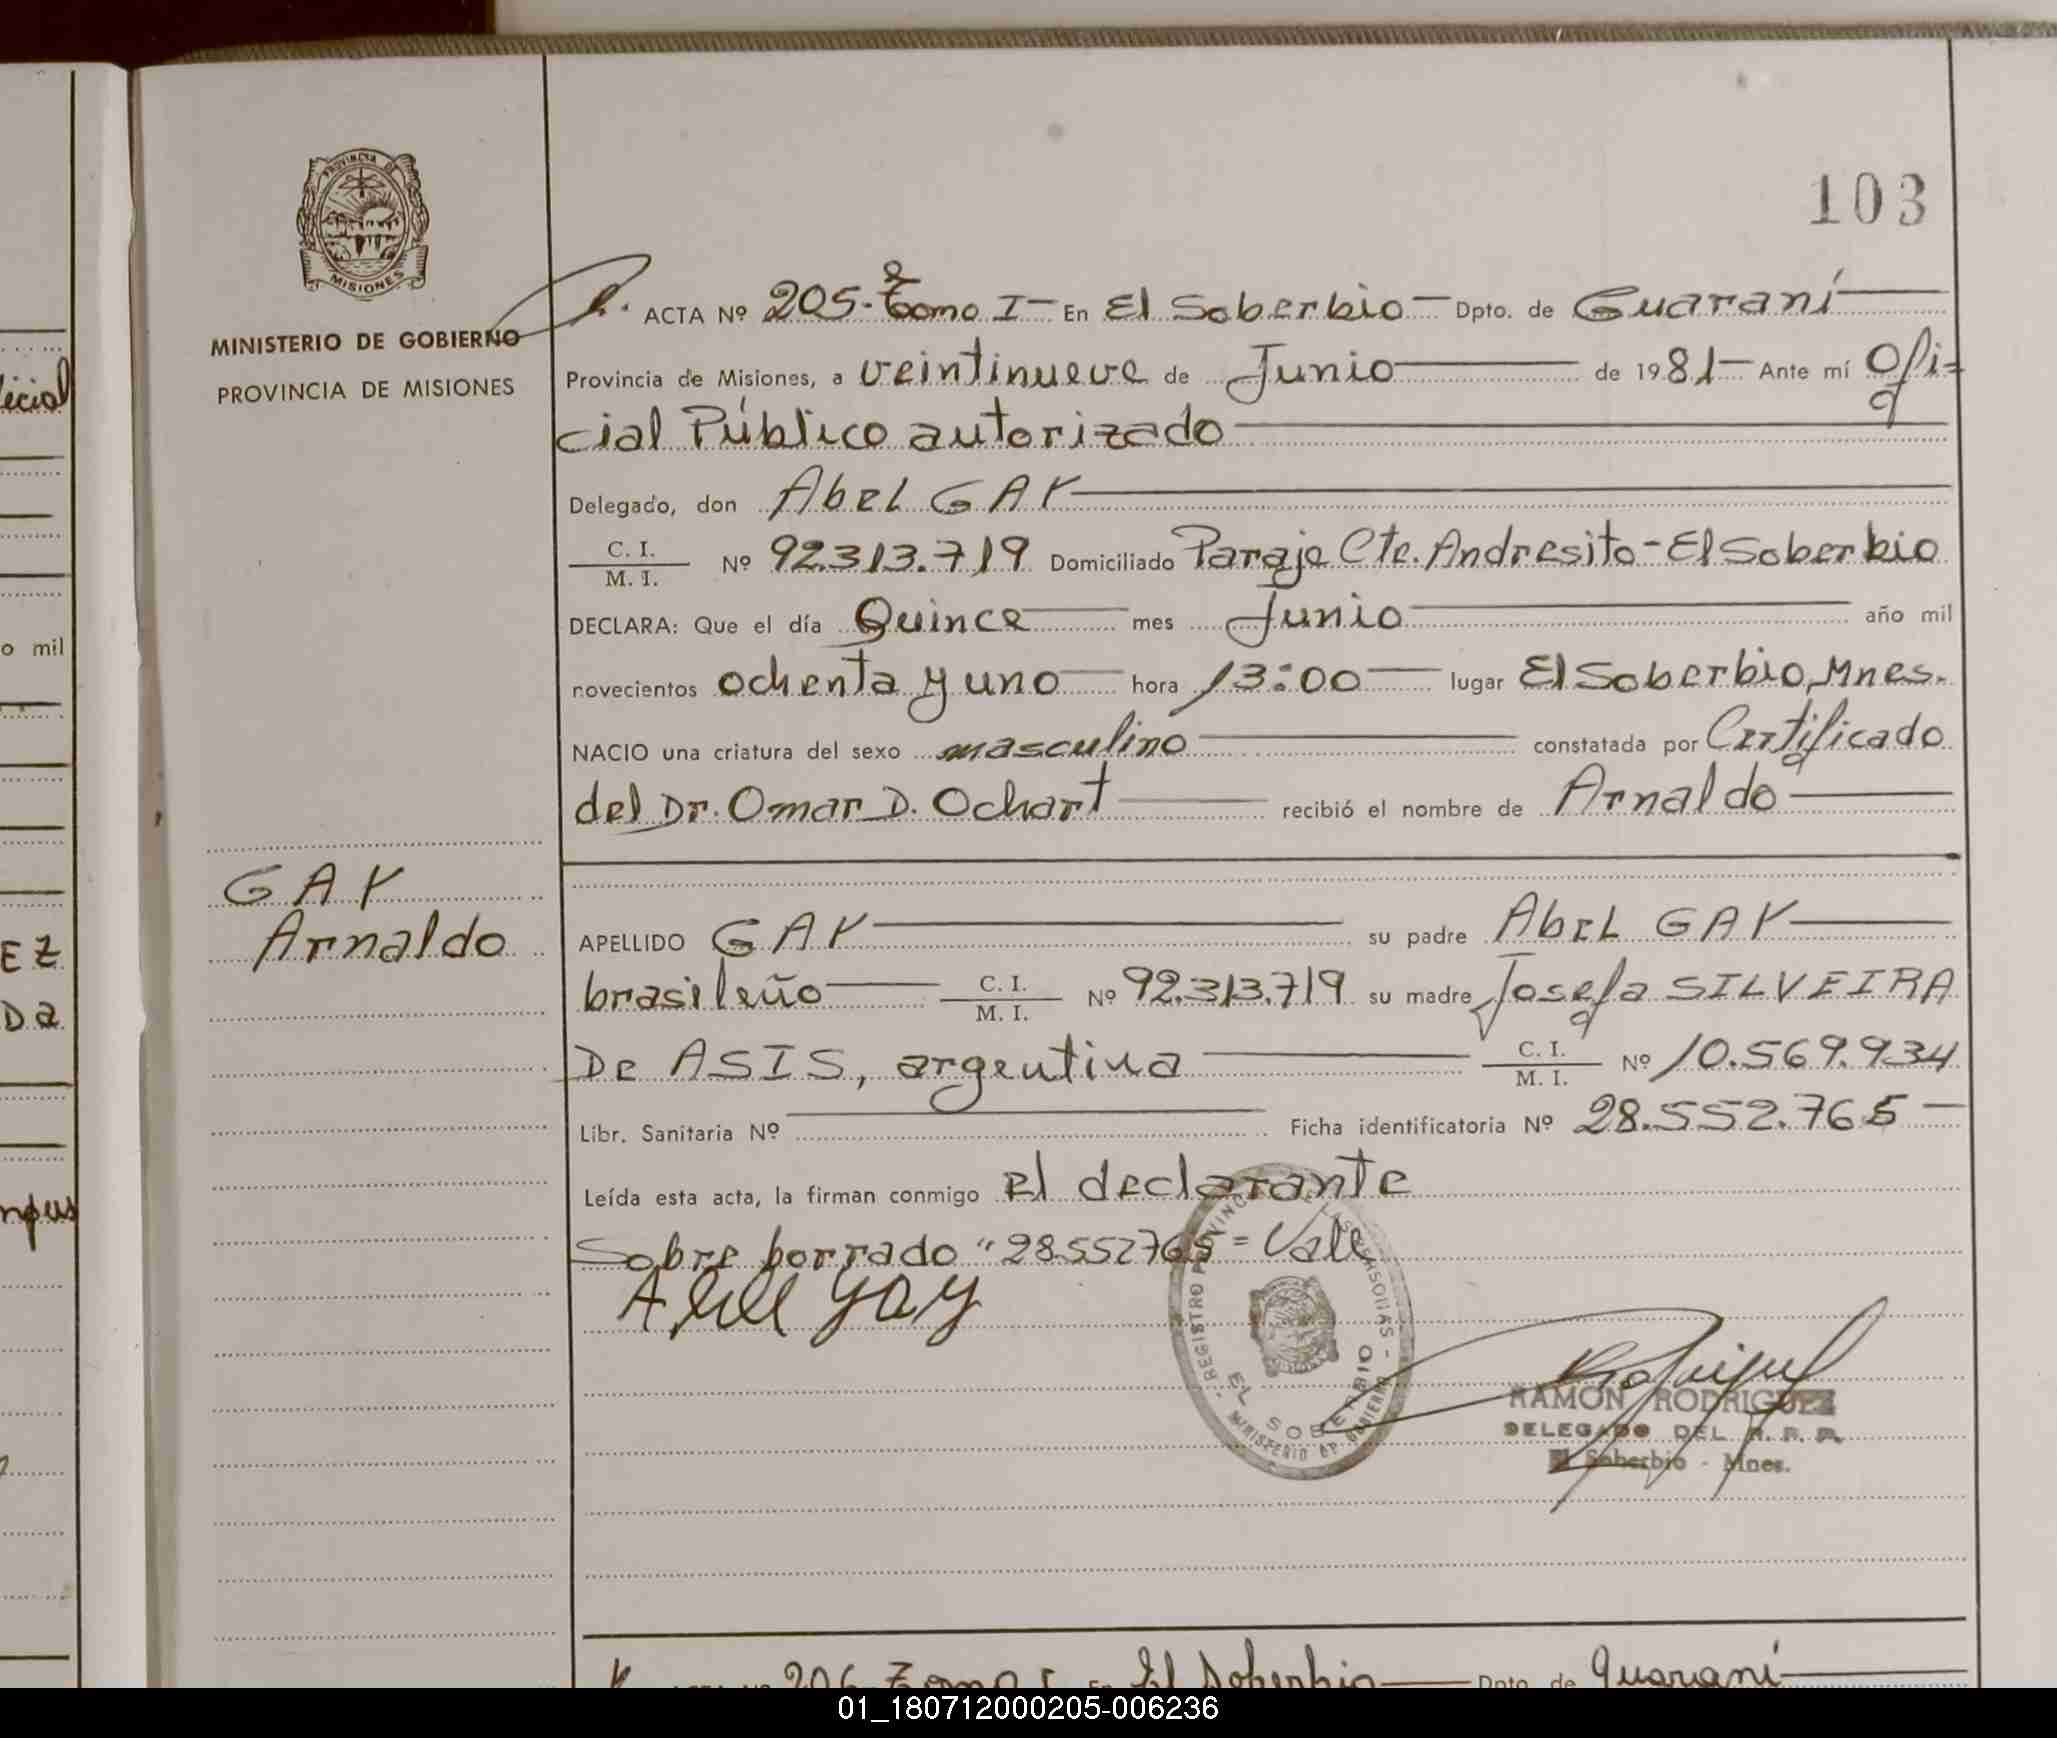 PROVINCIA DE
MISIONES
MINISTERIO DE GOBIERNO
PROVINCIA DE MISIONES
103
ACTA Nº 205-Tomo I- En El Soberbio- Dpto. de Guaraní
Provincia de Misiones, a veintinueve de Junio de 1981- Ante mí Ofi=
cial Público autorizado
Delegado, don Abel GAY
C. I.
M. I. Nº 92.313.719 Domiciliado Paraje Cte. Andresito-El Soberbio
DECLARA: Que el día Quince mes Junio año mil
novecientos ochenta y uno hora 13:00 lugar El Soberbio, Mnes.
NACIO una criatura del sexo masculino constatada por Certificado
del Dr. Omar D. Ochart recibió el nombre de Arnaldo
GAY
Arnaldo
APELLIDO GAY su padre Abel GAY
brasileño C. I.
M. I. Nº 92.313.719 su madre Josefa SILVEIRA
De ASIS, argentina C. I.
M. I. Nº 10.569.934
Libr. Sanitaria Nº Ficha identificatoria Nº 28.552.765
Leída esta acta, la firman conmigo el declarante
Sobre borrado "28552765= Vale
Abel gay
REGISTRO PROVINCIAL DE LAS PERSONAS
EL SOBERBIO
MINISTERIO DE GOBIERNO
RAMON RODRIGUEZ
DELEGADO DEL R. P. P.
El Soberbio - Mnes.
206 Tomo I En El Soberbio Dpto. de Guaraní
icial
o mil
EZ
Da
mpus
01_180712000205-006236